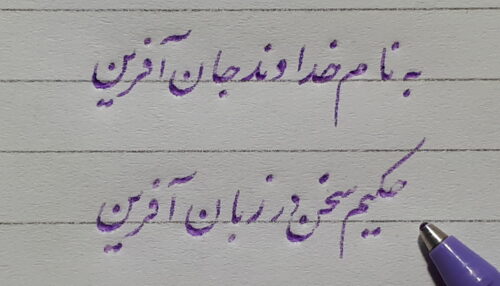 به نام خداوند جان آفرین
حکیم سخن در زبان آفرین